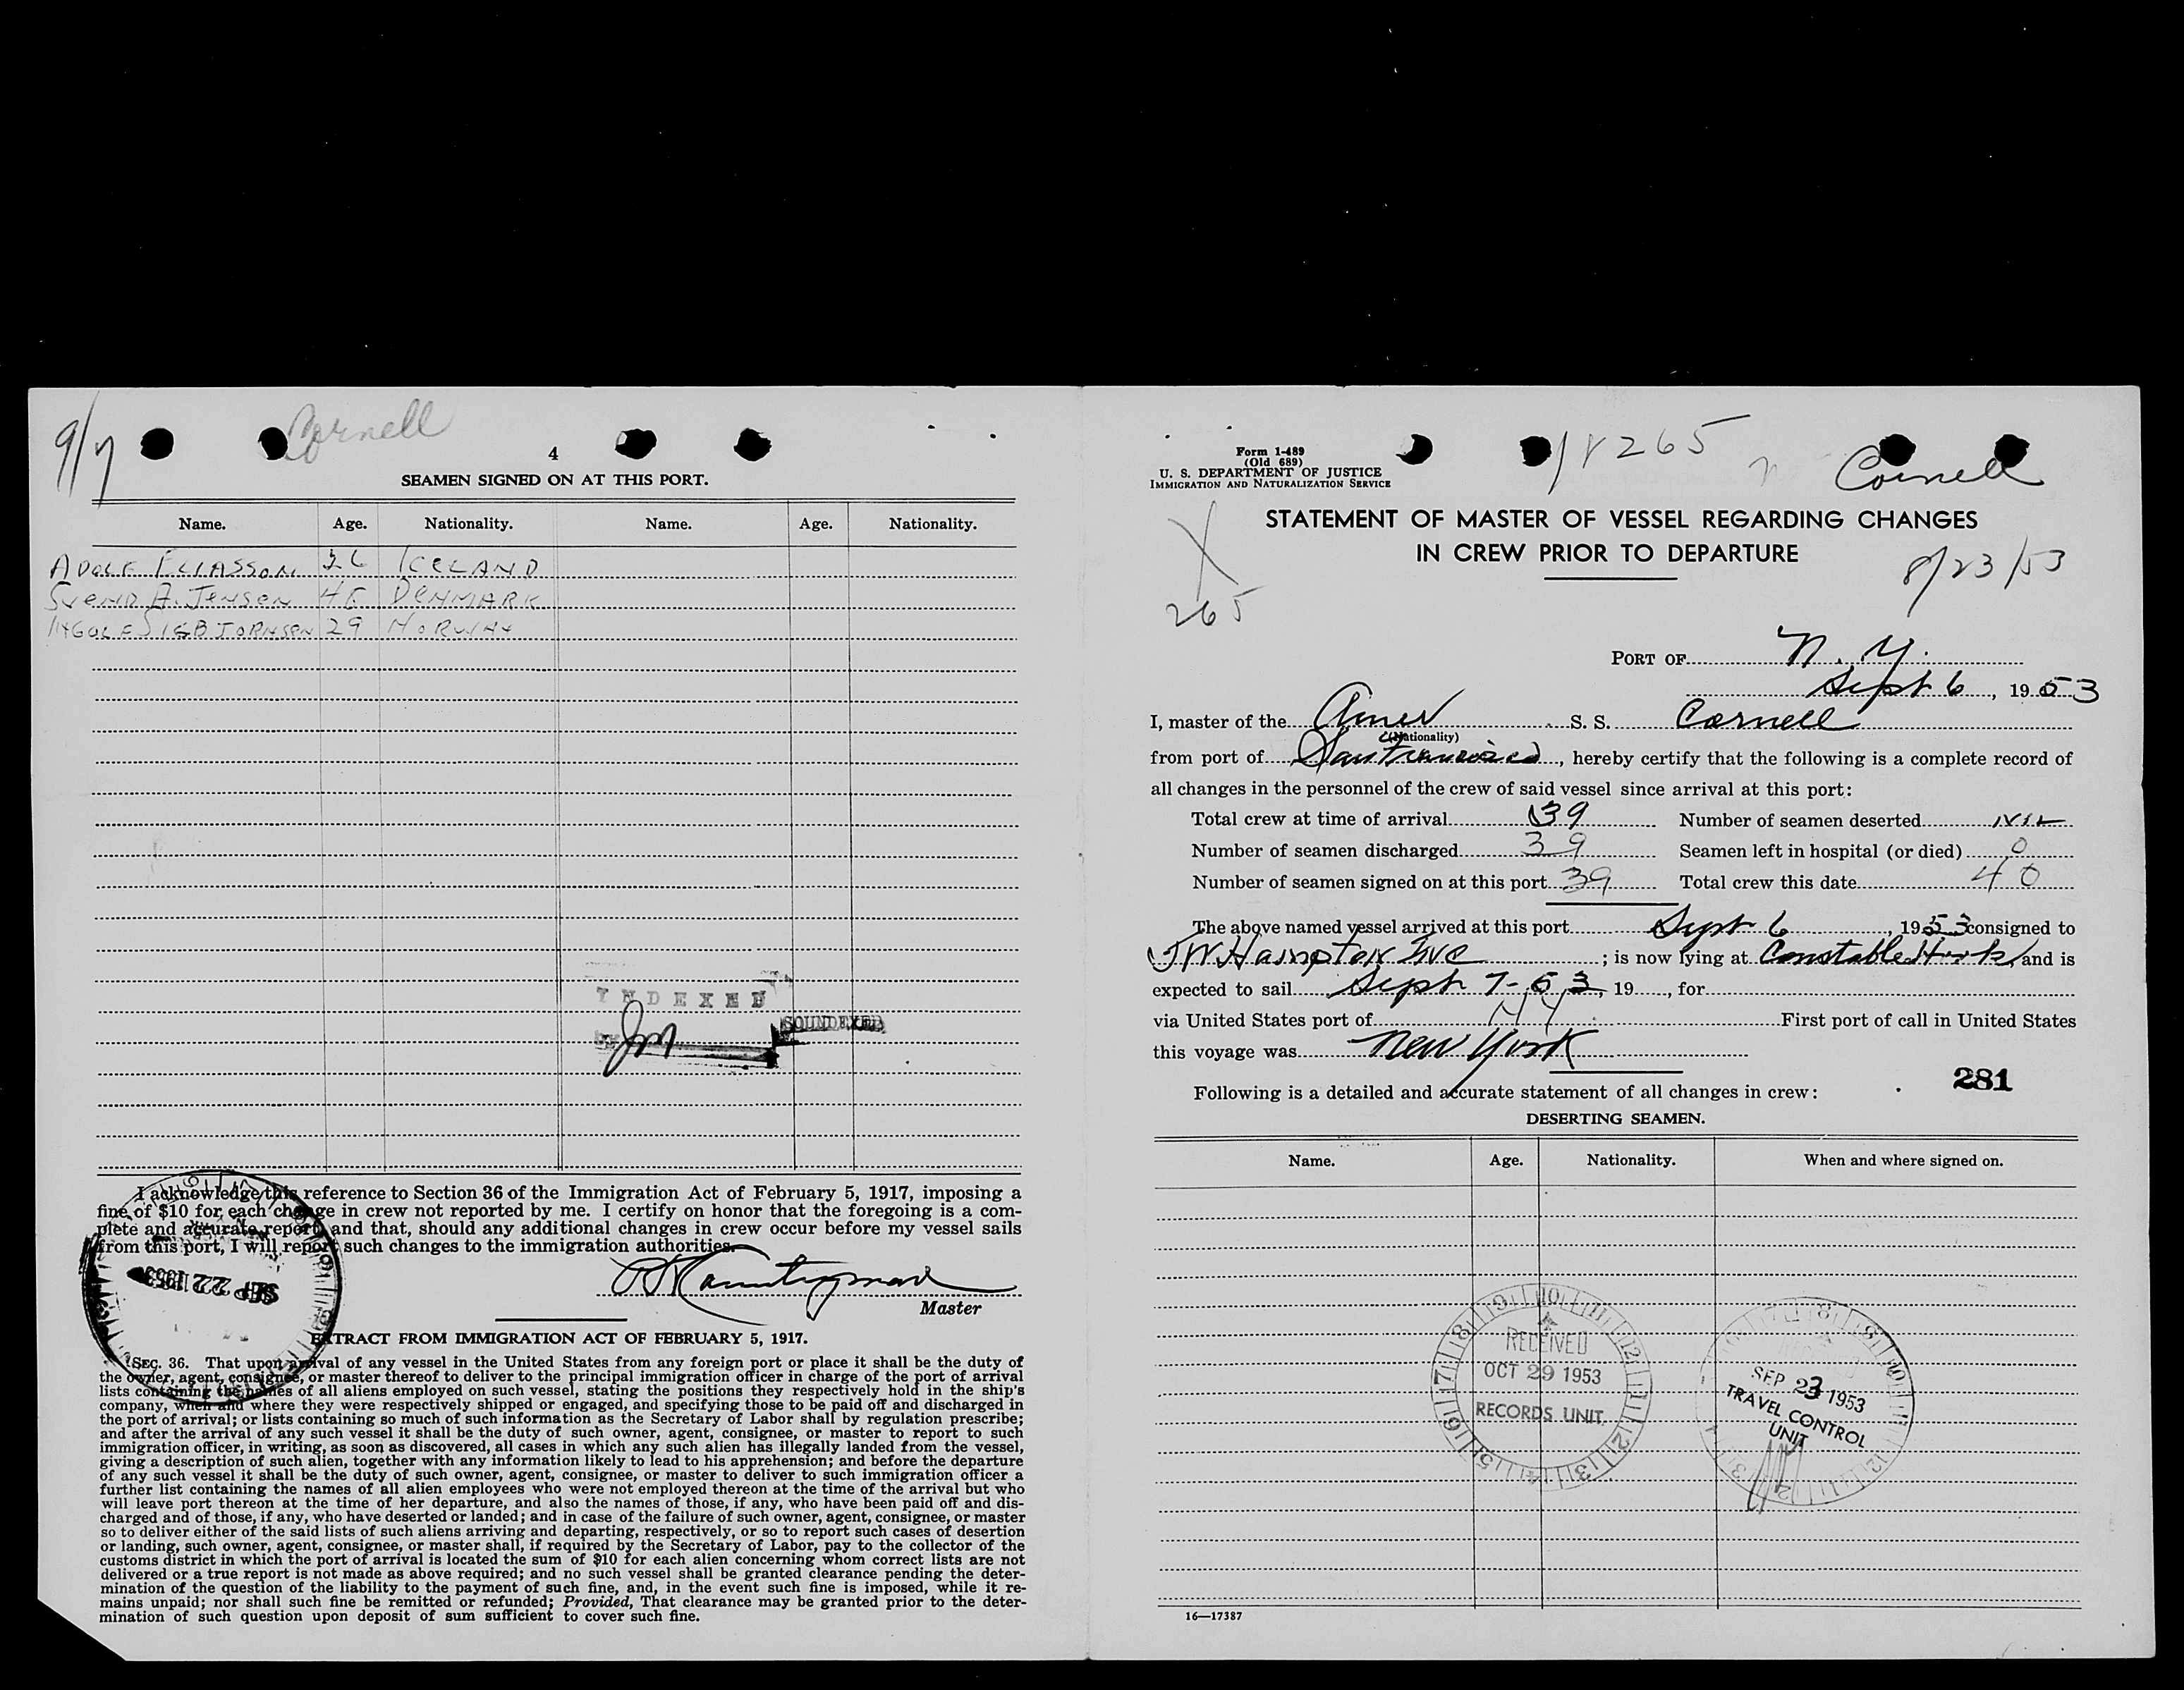 9/7
Cornell
4
SEAMEN SIGNED ON AT THIS PORT.
Name. Age. Nationality. Name. Age. Nationality.
ADOLF ELIASSON 26 ICELAND
SVEND A. JENSEN DENMARK
SIGBJORNSEN 29 NORWAY
INDEXED
SOUNDEXED
I acknowledge this reference to Section 36 of the Immigration Act of February 5, 1917, imposing a
fine of $10 for each change in crew not reported by me. I certify on honor that the foregoing is a com-
plete and accurate report, and that, should any additional changes in crew occur before my vessel sails
from this port, I will report such changes to the immigration authorities.
SEP 22 1953
Master
EXTRACT FROM IMMIGRATION ACT OF FEBRUARY 5, 1917.
SEC. 36. That upon arrival of any vessel in the United States from any foreign port or place it shall be the duty of
the owner, agent, consignee, or master thereof to deliver to the principal immigration officer in charge of the port of arrival
lists containing the names of all aliens employed on such vessel, stating the positions they respectively hold in the ship's
company, when and where they were respectively shipped or engaged, and specifying those to be paid off and discharged in
the port of arrival; or lists containing so much of such information as the Secretary of Labor shall by regulation prescribe;
and after the arrival of any such vessel it shall be the duty of such owner, agent, consignee, or master to report to such
immigration officer, in writing, as soon as discovered, all cases in which any such alien has illegally landed from the vessel,
giving a description of such alien, together with any information likely to lead to his apprehension; and before the departure
of any such vessel it shall be the duty of such owner, agent, consignee, or master to deliver to such immigration officer a
further list containing the names of all alien employees who were not employed thereon at the time of the arrival but who
will leave port thereon at the time of her departure, and also the names of those, if any, who have been paid off and dis-
charged and of those, if any, who have deserted or landed; and in case of the failure of such owner, agent, consignee, or master
so to deliver either of the said lists of such aliens arriving and departing, respectively, or so to report such cases of desertion
or landing, such owner, agent, consignee, or master shall, if required by the Secretary of Labor, pay to the collector of the
customs district in which the port of arrival is located the sum of $10 for each alien concerning whom correct lists are not
delivered or a true report is not made as above required; and no such vessel shall be granted clearance pending the deter-
mination of the question of the liability to the payment of such fine, and, in the event such fine is imposed, while it re-
mains unpaid; nor shall such fine be remitted or refunded; Provided, That clearance may be granted prior to the deter-
mination of such question upon deposit of sum sufficient to cover such fine.
Form 1-489
(Old 689)
U. S. DEPARTMENT OF JUSTICE
IMMIGRATION AND NATURALIZATION SERVICE
18265
Cornell
X
265
STATEMENT OF MASTER OF VESSEL REGARDING CHANGES
IN CREW PRIOR TO DEPARTURE
8/23/53
PORT OF N. Y.
Sept 6, 1953
I, master of the Amer S. S. Cornell
(Nationality)
from port of San Francisco, hereby certify that the following is a complete record of
all changes in the personnel of the crew of said vessel since arrival at this port:
Total crew at time of arrival 39 Number of seamen deserted NIL
Number of seamen discharged 39 Seamen left in hospital (or died) 0
Number of seamen signed on at this port 39 Total crew this date 40
The above named vessel arrived at this port Sept 6, 1953 consigned to
JW Hampton Inc; is now lying at Constable Hook, and is
expected to sail Sept 7-53, 19, for
via United States port of NY. First port of call in United States
this voyage was New York
281
Following is a detailed and accurate statement of all changes in crew:
DESERTING SEAMEN.
Name. Age. Nationality. When and where signed on.
RECEIVED
OCT 29 1953
RECORDS UNIT
SEP 23 1953
TRAVEL CONTROL
UNIT
16—17387